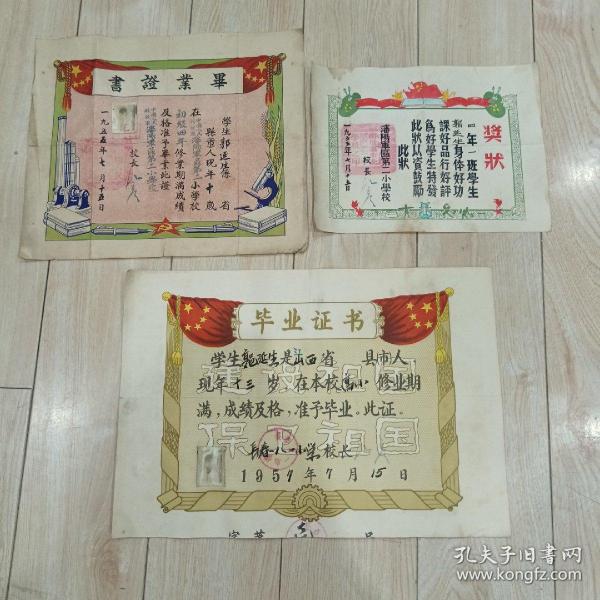 畢業證書
學生郭延生 省
縣市人現年十歲
在 小學校
初級四年修業期滿成績
及格准予畢業此證
校長
一九五五年七月十五日
獎狀
四年一班學生
郭延生身体好功
課好品行好評
為好學生特發
此狀以資鼓勵
此狀
瀋陽軍區第二小學校
校長
一九五五年七月十五日
毕业证书
学生郭延生是山西省 县市人
现年十三岁,在本校高小修业期
满,成绩及格,准予毕业。此证。
建设祖国
保卫祖国
长春八一小学校长
1957年7月15日
字第 号
孔夫子旧书网
www.kongfz.com